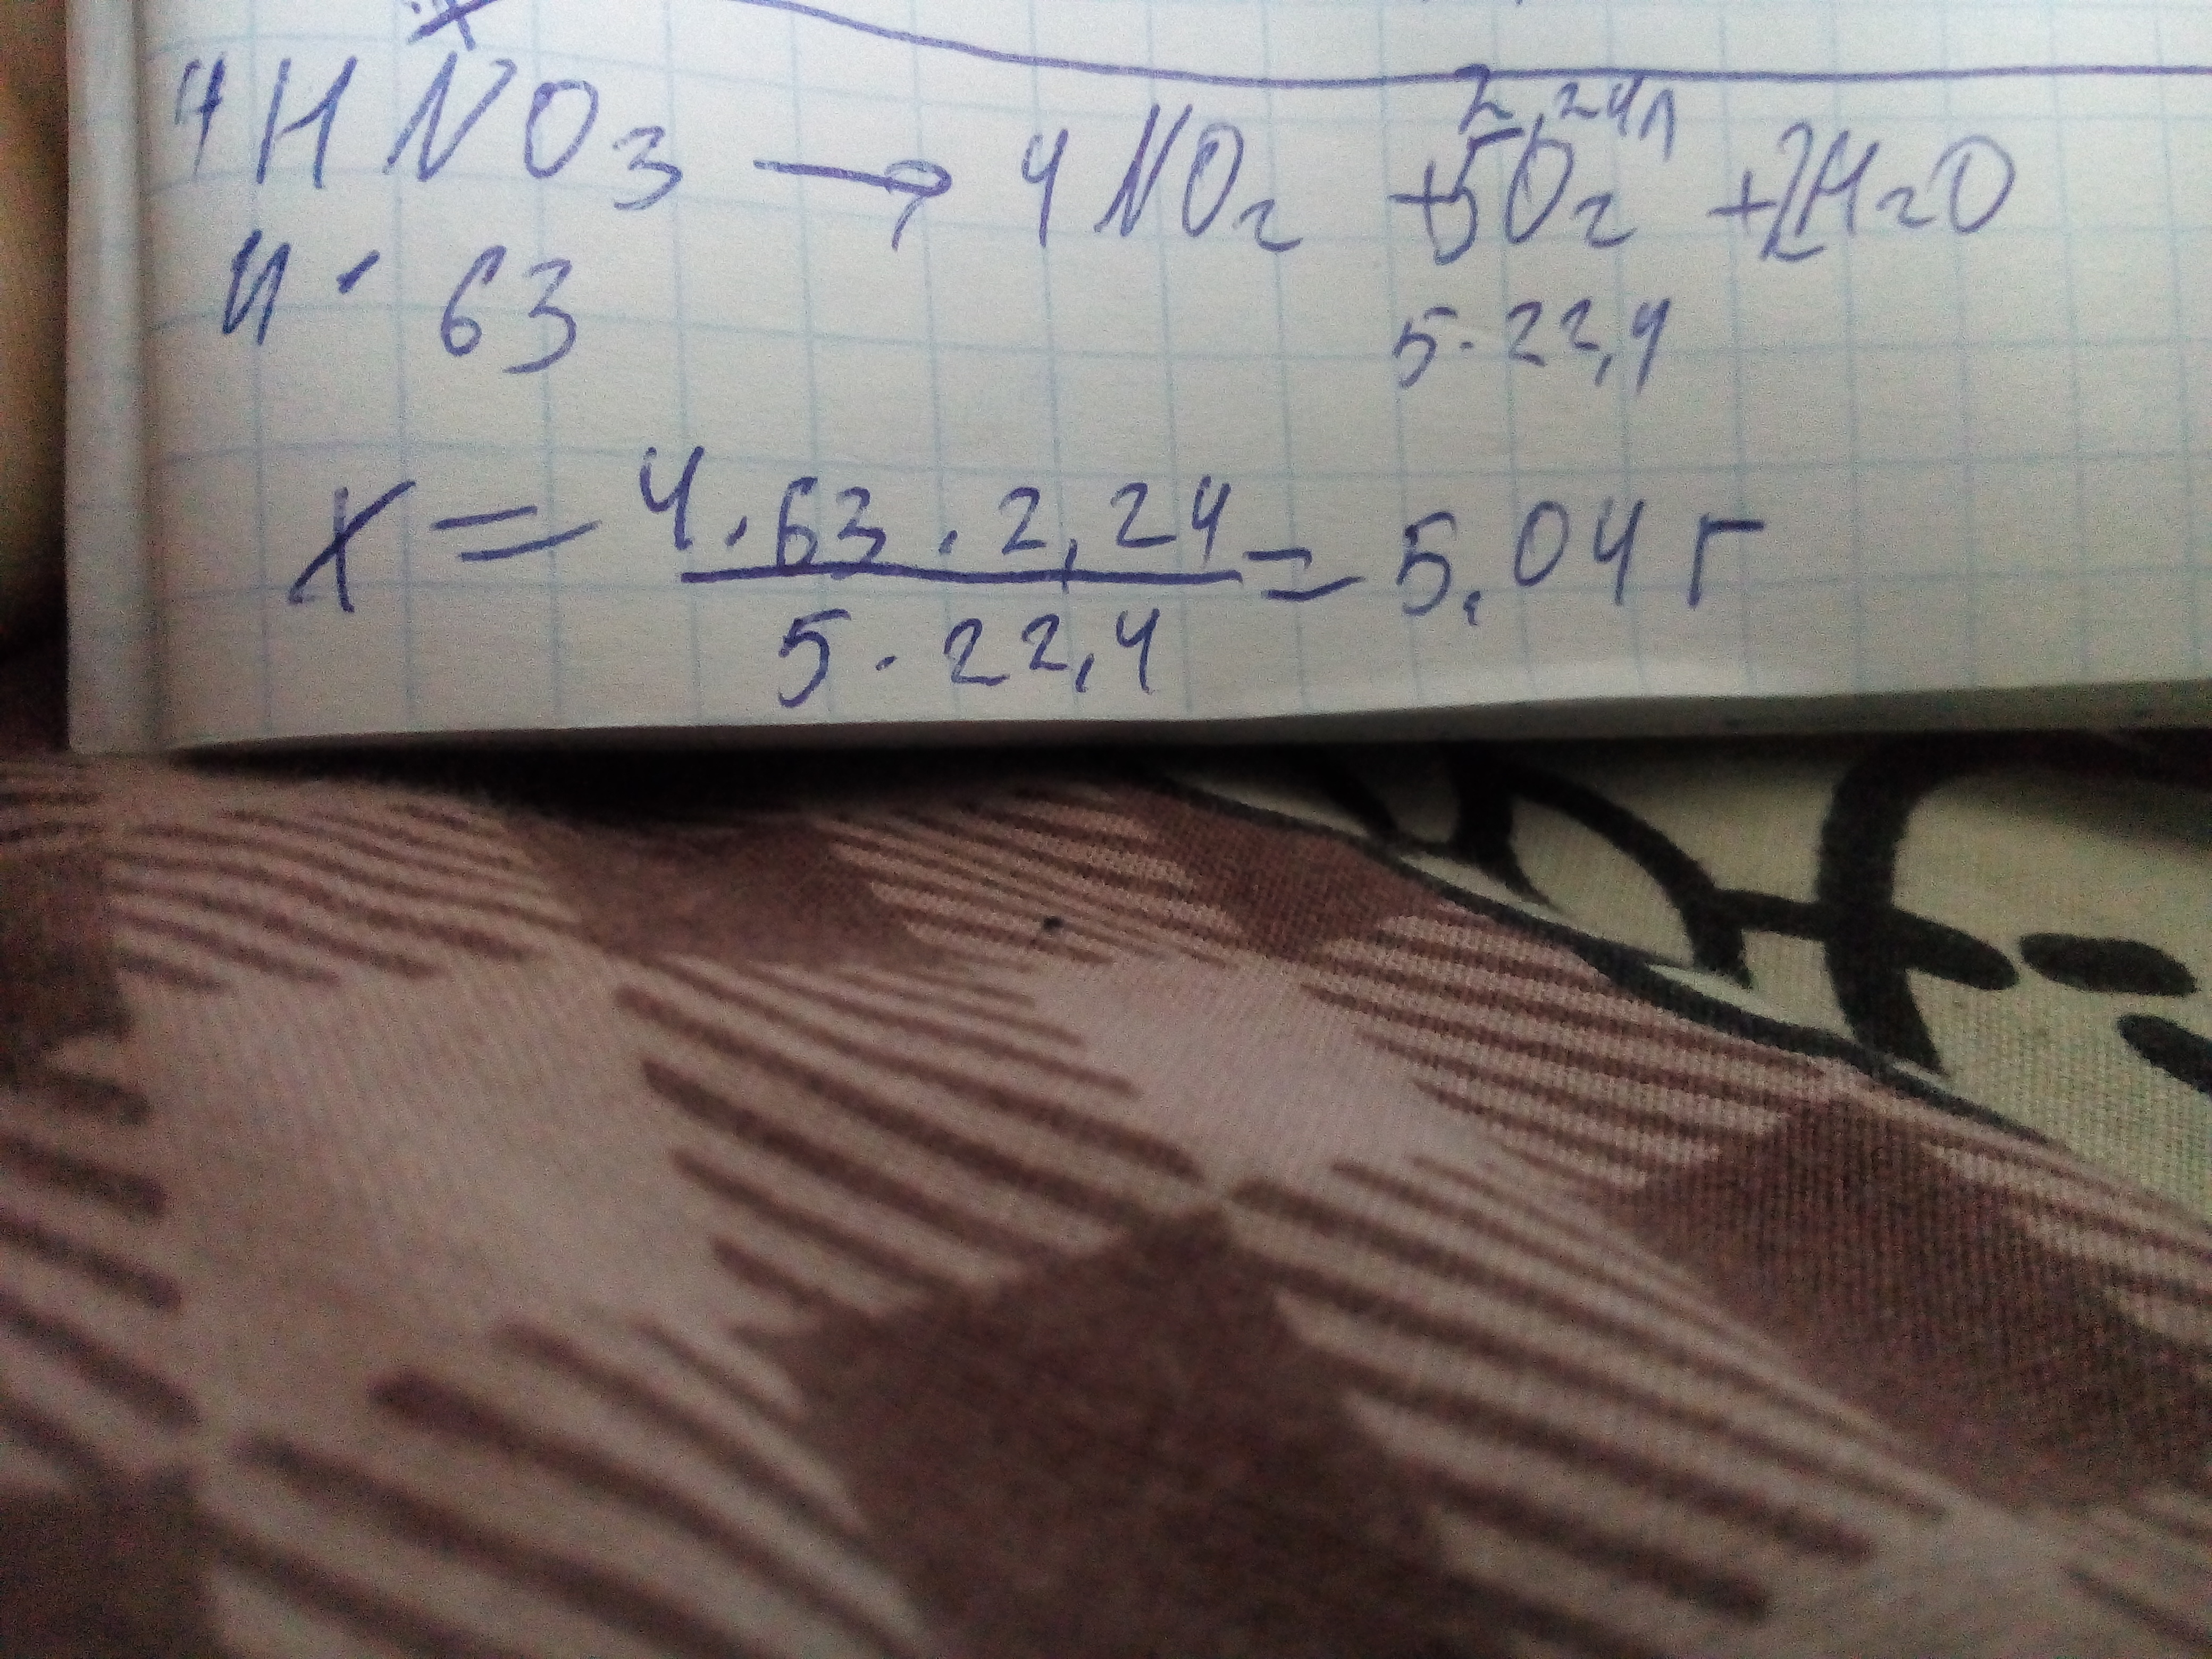 x
2,24л
4HNO₃ → 4NO₂ +5O₂ +2H₂O
4 · 63 5 · 22,4
x = 4 · 63 · 2,24 / 5 · 22,4 = 5,04 г